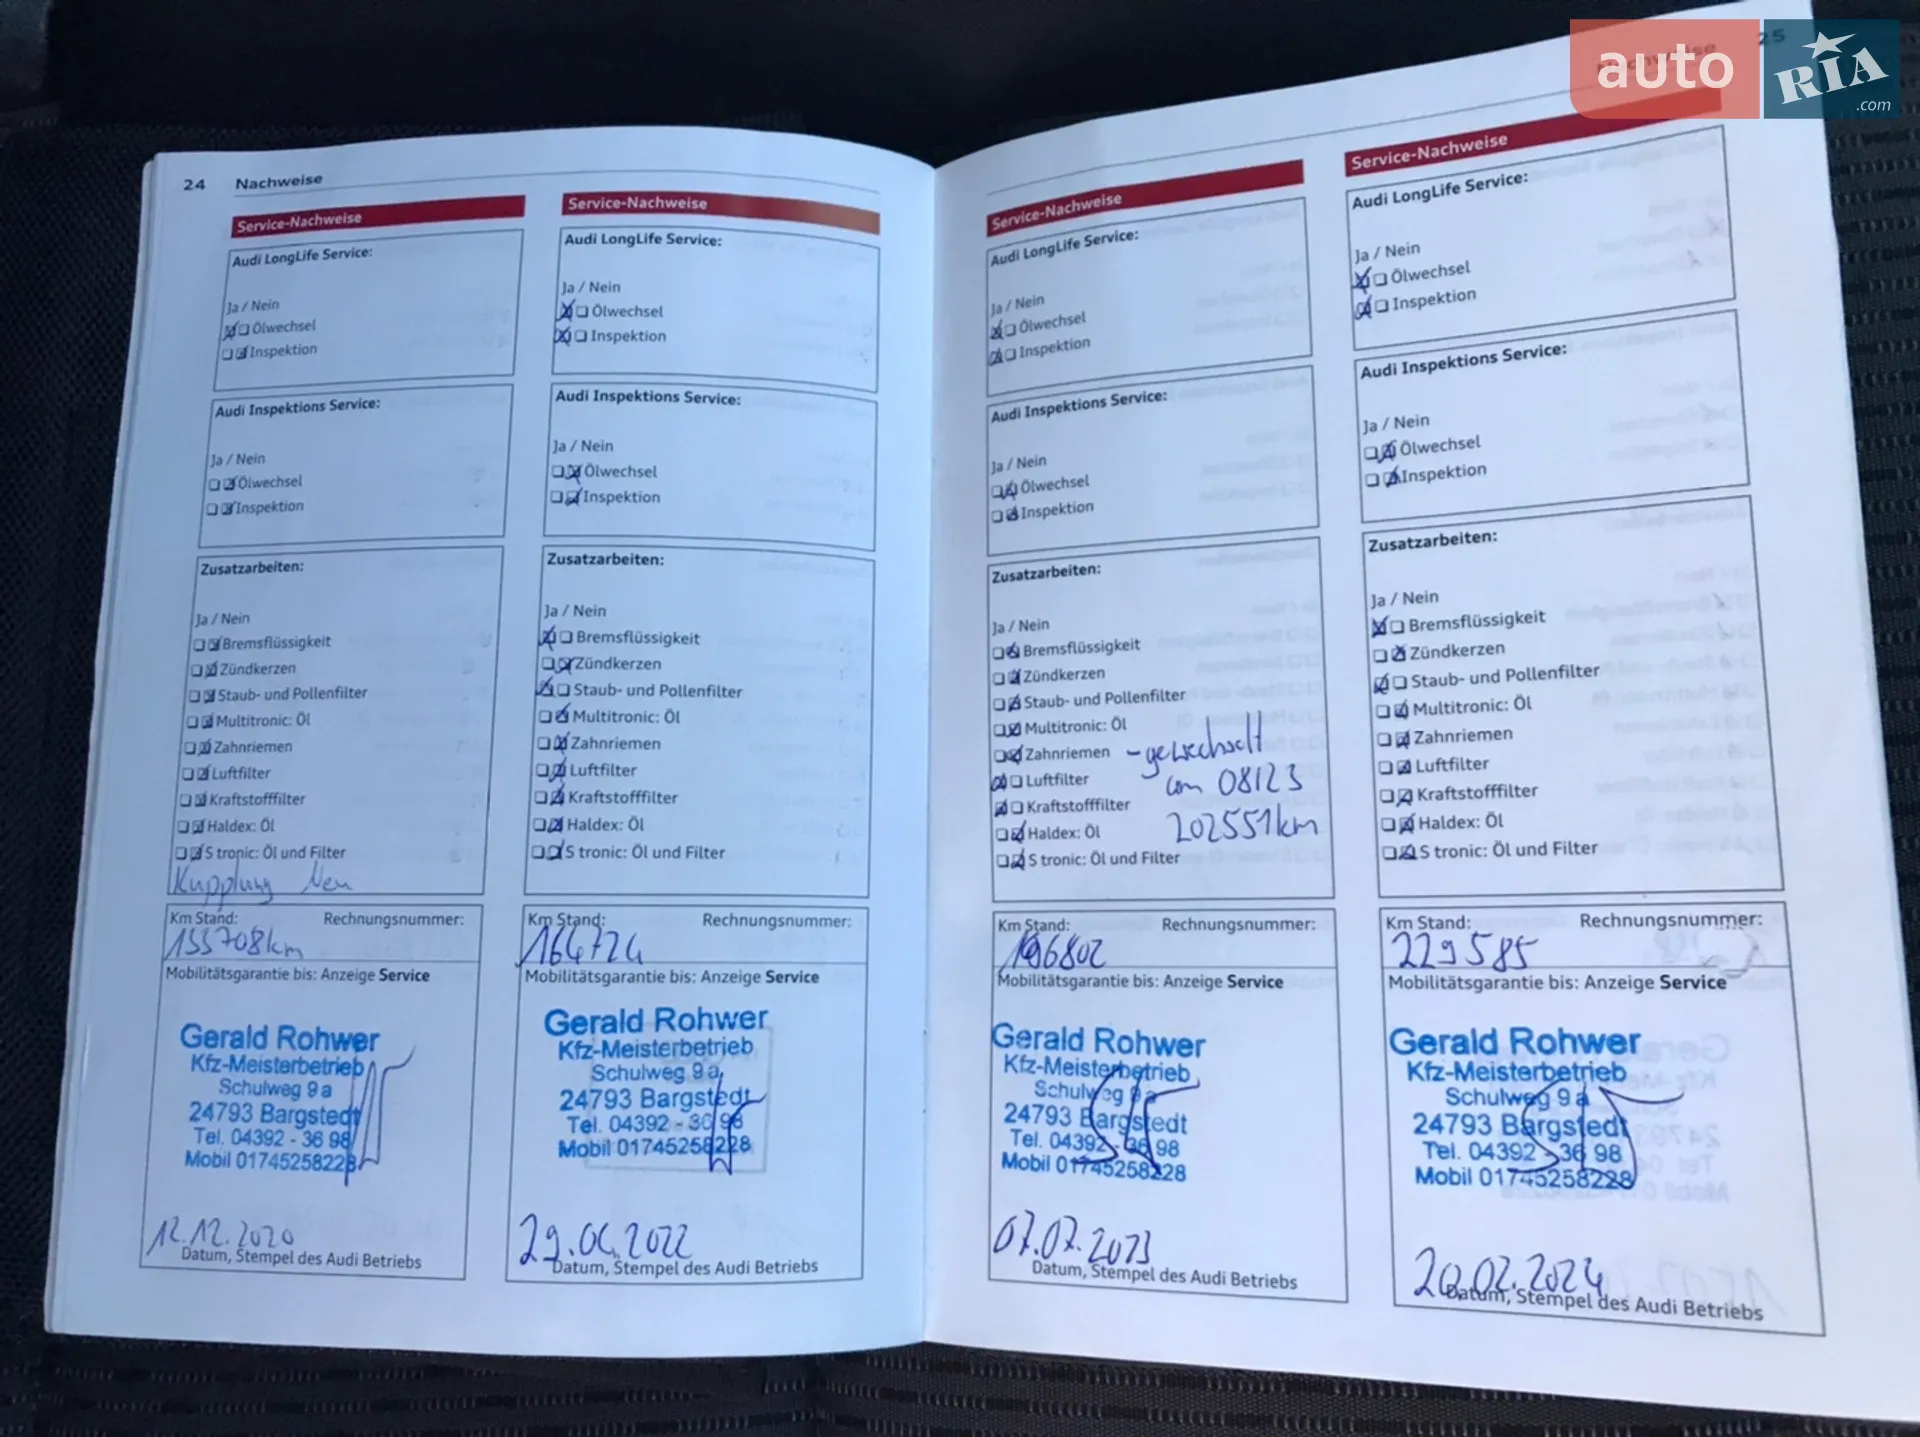 auto RIA .com
24 Nachweise
Service-Nachweise
Audi LongLife Service:
Ja / Nein
Ölwechsel
Inspektion
Audi Inspektions Service:
Ja / Nein
Ölwechsel
Inspektion
Zusatzarbeiten:
Ja / Nein
Bremsflüssigkeit
Zündkerzen
Staub- und Pollenfilter
Multitronic: Öl
Zahnriemen
Luftfilter
Kraftstofffilter
Haldex: Öl
S tronic: Öl und Filter
Kupplung Neu
Km Stand: Rechnungsnummer:
155708km
Mobilitätsgarantie bis: Anzeige Service
Gerald Rohwer
Kfz-Meisterbetrieb
Schulweg 9 a
24793 Bargstedt
Tel. 04392 - 36 98
Mobil 01745258228
12.12.2020
Datum, Stempel des Audi Betriebs
Service-Nachweise
Audi LongLife Service:
Ja / Nein
Ölwechsel
Inspektion
Audi Inspektions Service:
Ja / Nein
Ölwechsel
Inspektion
Zusatzarbeiten:
Ja / Nein
Bremsflüssigkeit
Zündkerzen
Staub- und Pollenfilter
Multitronic: Öl
Zahnriemen
Luftfilter
Kraftstofffilter
Haldex: Öl
S tronic: Öl und Filter
Km Stand: Rechnungsnummer:
164724
Mobilitätsgarantie bis: Anzeige Service
Gerald Rohwer
Kfz-Meisterbetrieb
Schulweg 9 a
24793 Bargstedt
Tel. 04392 - 36 98
Mobil 01745258228
29.06.2022
Datum, Stempel des Audi Betriebs
25
Service-Nachweise
Audi LongLife Service:
Ja / Nein
Ölwechsel
Inspektion
Audi Inspektions Service:
Ja / Nein
Ölwechsel
Inspektion
Zusatzarbeiten:
Ja / Nein
Bremsflüssigkeit
Zündkerzen
Staub- und Pollenfilter
Multitronic: Öl
Zahnriemen - gewechselt
Luftfilter 08123
Kraftstofffilter
Haldex: Öl 202551km
S tronic: Öl und Filter
Km Stand: Rechnungsnummer:
196802
Mobilitätsgarantie bis: Anzeige Service
Gerald Rohwer
Kfz-Meisterbetrieb
Schulweg 9 a
24793 Bargstedt
Tel. 04392 - 36 98
Mobil 01745258228
07.07.2023
Datum, Stempel des Audi Betriebs
Service-Nachweise
Audi LongLife Service:
Ja / Nein
Ölwechsel
Inspektion
Audi Inspektions Service:
Ja / Nein
Ölwechsel
Inspektion
Zusatzarbeiten:
Ja / Nein
Bremsflüssigkeit
Zündkerzen
Staub- und Pollenfilter
Multitronic: Öl
Zahnriemen
Luftfilter
Kraftstofffilter
Haldex: Öl
S tronic: Öl und Filter
Km Stand: Rechnungsnummer:
229585
Mobilitätsgarantie bis: Anzeige Service
Gerald Rohwer
Kfz-Meisterbetrieb
Schulweg 9 a
24793 Bargstedt
Tel. 04392 - 36 98
Mobil 01745258228
20.02.2024
Datum, Stempel des Audi Betriebs